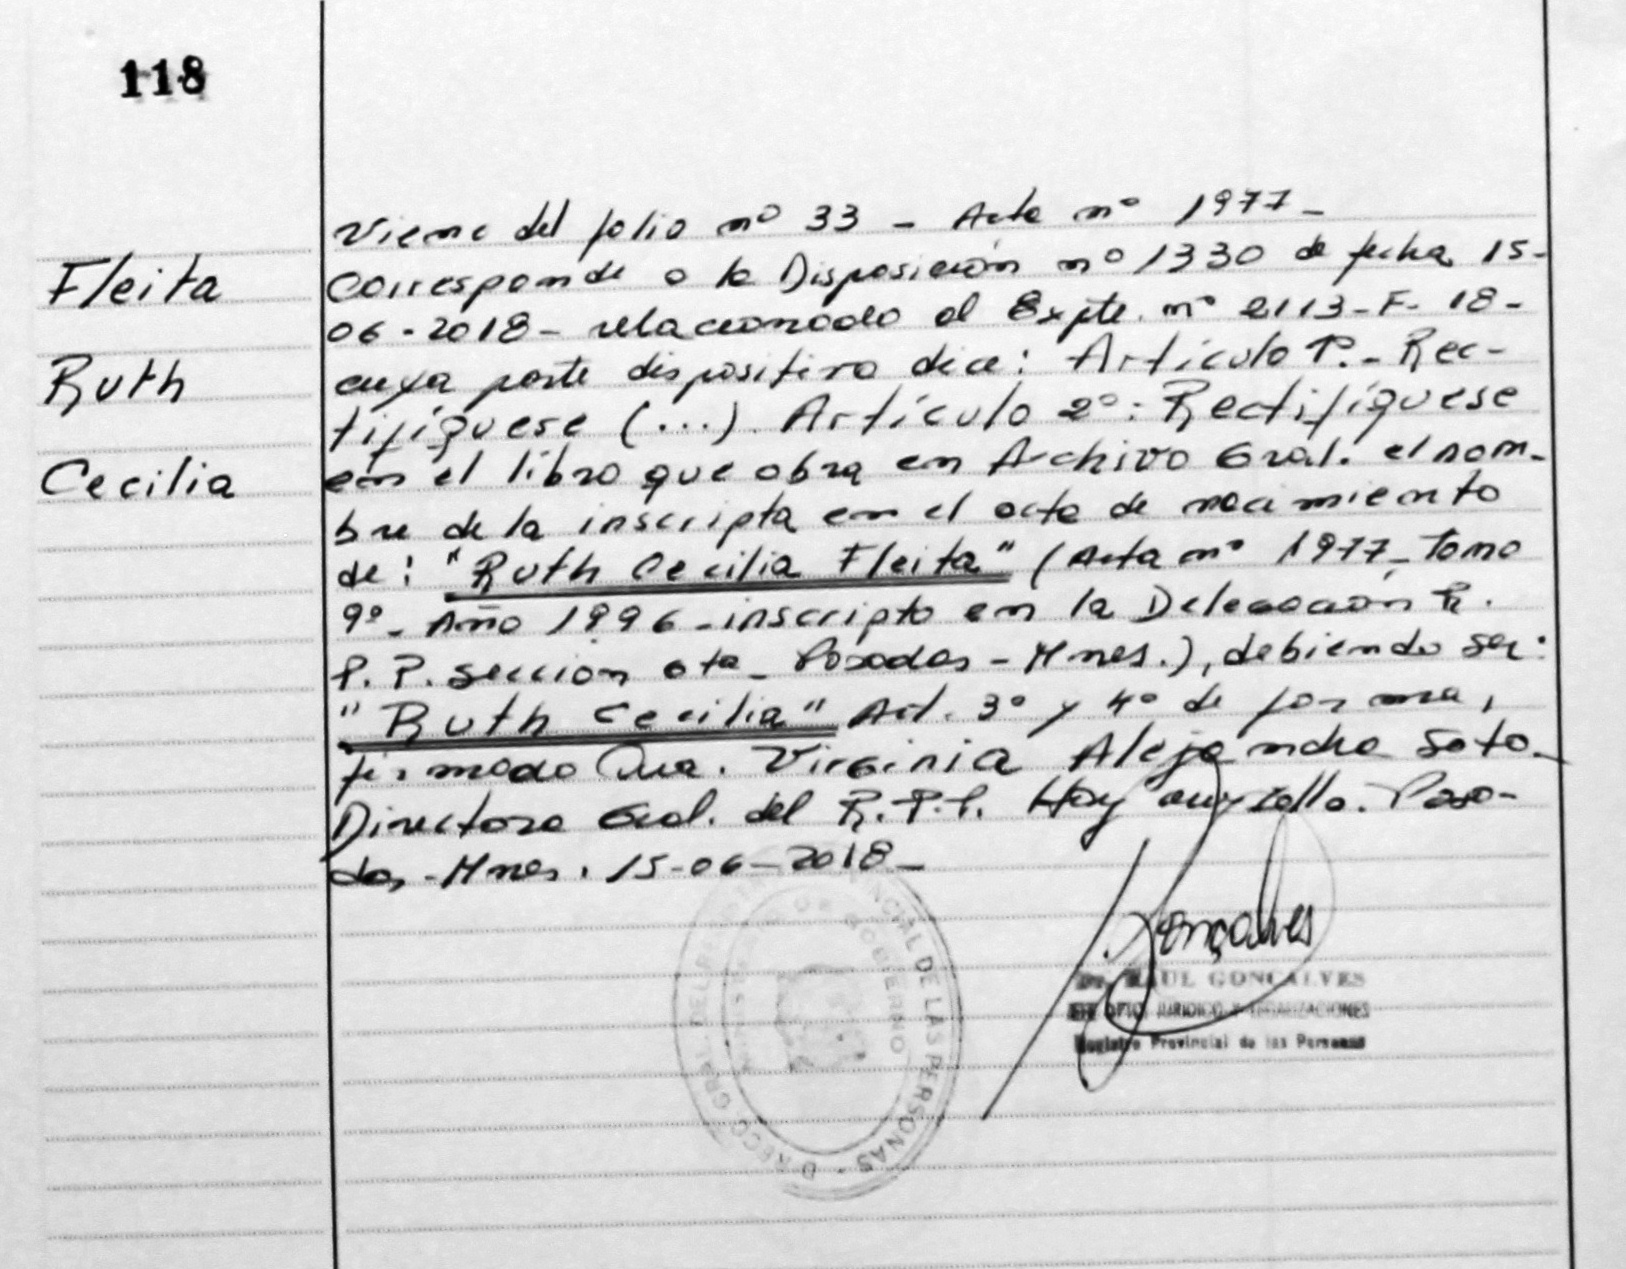 118
Fleita
Ruth
Cecilia
Viene del folio nº 33 - Acta nº 1977-
Corresponde a la Disposición nº 1330 de fecha 15-
06-2018- relacionado al Expte. nº 2113-F-18-
cuya parte dispositiva dice: Artículo 1º.- Rec-
tifíquese (...). Artículo 2º: Rectifíquese
en el libro que obra en Archivo Gral. el nom-
bre de la inscripta en el acta de nacimiento
de: "Ruth Cecilia Fleita" (Acta nº 1977- Tomo
9º- Año 1996- inscripto en la Delegación R.
P.P. sección 6ta- Posadas - Mnes.), debiendo ser:
"Ruth Cecilia" Art. 3º y 4º de forma,
firmado Dra. Virginia Alejandra Soto-
Directora Gral. del R.P.P. Hay sello. Posa-
das - Mnes. 15-06-2018-
Gonçalves
RAUL GONCALVES
JURIDICO Y LEGALIZACIONES
Registro Provincial de las Personas
DIRECC. GRAL. DEL REGISTRO PROVINCIAL DE LAS PERSONAS
GOBIERNO